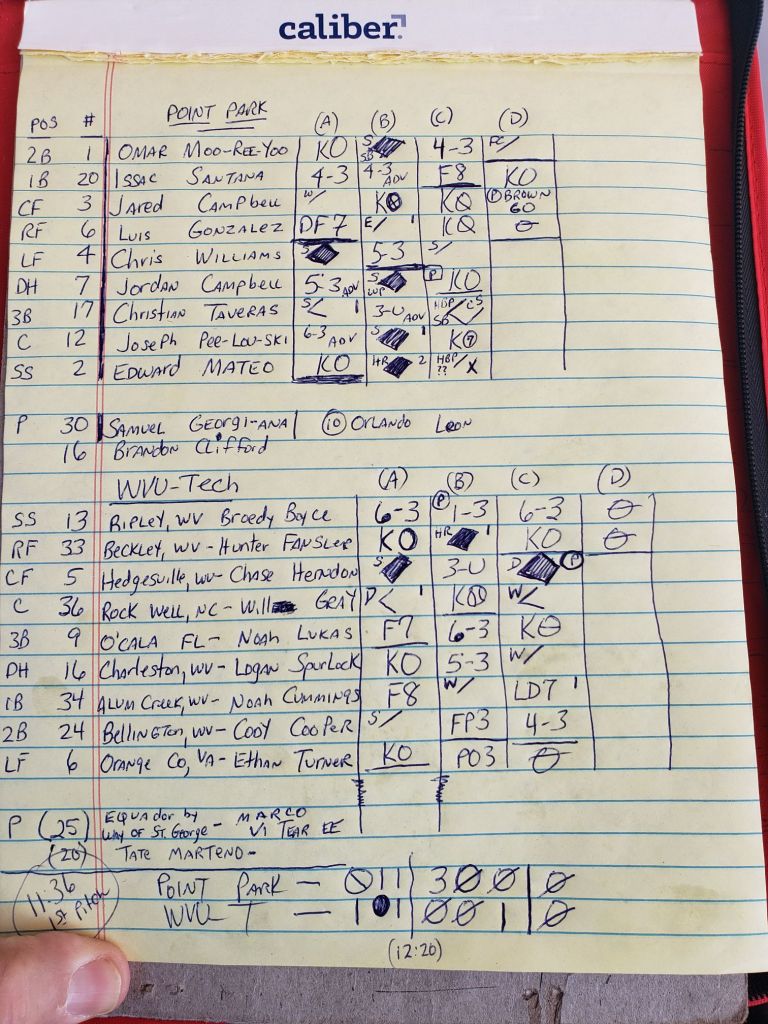 caliber
POS # POINT PARK (A) (B) (C) (D)
2B 1 OMAR MOO-REE-YOO KO S SB 4-3 FC/
1B 20 ISSAC SANTANA 4-3 4-3 ADV F8 KO
CF 3 JARED CAMPBELL W/ KO KO (P) BROWN GO
RF 6 LUIS GONZALEZ DF7 E/ 1 KO
LF 4 CHRIS WILLIAMS S 5-3 S/
DH 7 JORDAN CAMPBELL 5-3 ADV S WP (P) KO
3B 17 CHRISTIAN TAVERAS S< 1 3-U ADV HBP/CS SB
C 12 JOSEPH PEE-LOU-SKI 6-3 ADV S 1 KO
SS 2 EDWARD MATEO KO HR 2 HBP/X ??
P 30 SAMUEL GEORGI-ANA (10) ORLANDO LEON
16 BRANDON CLIFFORD
WVU-TECH (A) (B) (C) (D)
SS 13 RIPLEY, WV BROEDY BOYCE 6-3 (P) 1-3 6-3 Ø
RF 33 BECKLEY, WV- HUNTER FANSLER KO HR 1 KO Ø
CF 5 HEDGESVILLE, WV- CHASE HERNDON S 3-U D (P)
C 36 ROCK WELL, NC- WILL GRAY D< 1 KO W<
3B 9 O'CALA FL- NOAH LUKAS F7 6-3 KO
DH 16 CHARLESTON, WV- LOGAN SPURLOCK KO 5-3 W/
1B 34 ALUM CREEK, WV- NOAH CUMMINGS F8 W/ LD7 1
2B 24 BELLINGTON, WV- COOY COOPER S/ FP3 4-3
LF 6 ORANGE CO, VA- ETHAN TURNER KO PO3 Ø
P (25) EQUADOR BY WAY OF ST. GEORGE- MARCO VI TEAR EE
(20) TATE MARTENO-
11:36 1st Pitch
POINT PARK — Ø 1 1 3 Ø Ø Ø
WVU-T — 1 1 Ø Ø 1 Ø
(12:20)